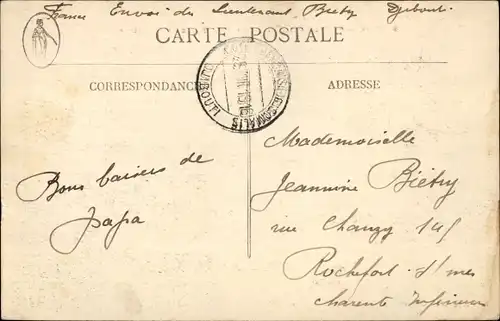 France Envoi du Lieutenant Biétry Djibouti
CARTE POSTALE
CORRESPONDANCE
ADRESSE
DJIBOUTI
SOMALIS
Bons baisers de
papa
Mademoiselle
Jeannine Biétry
rue Chanzy 145
Rochefort s/ mer
Charente Inférieure